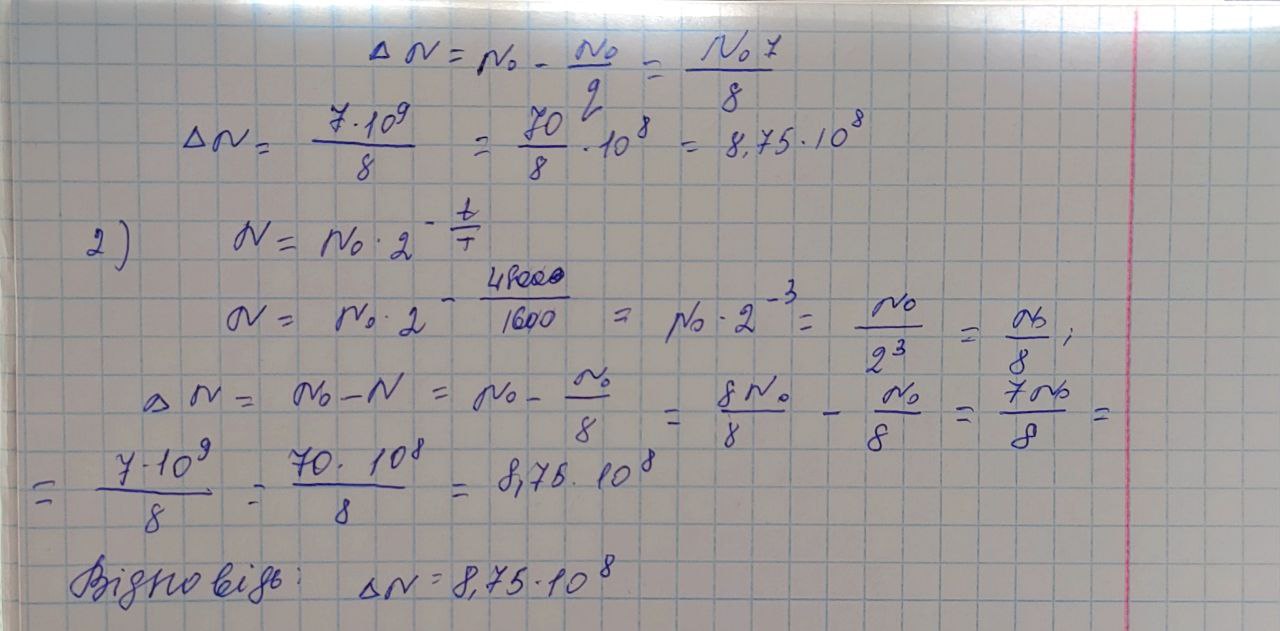 ΔN = N₀ - N₀/8 = N₀7/8
ΔN = 7·10⁹/8 = 70/8 · 10⁸ = 8,75·10⁸
2) N = N₀·2^(-t/T)
N = N₀·2^(-48000/1600) = N₀·2⁻³ = N₀/2³ = N₀/8;
ΔN = N₀-N = N₀ - N₀/8 = 8N₀/8 - N₀/8 = 7N₀/8 =
= 7·10⁹/8 = 70·10⁸/8 = 8,75·10⁸
Відповідь: ΔN = 8,75·10⁸